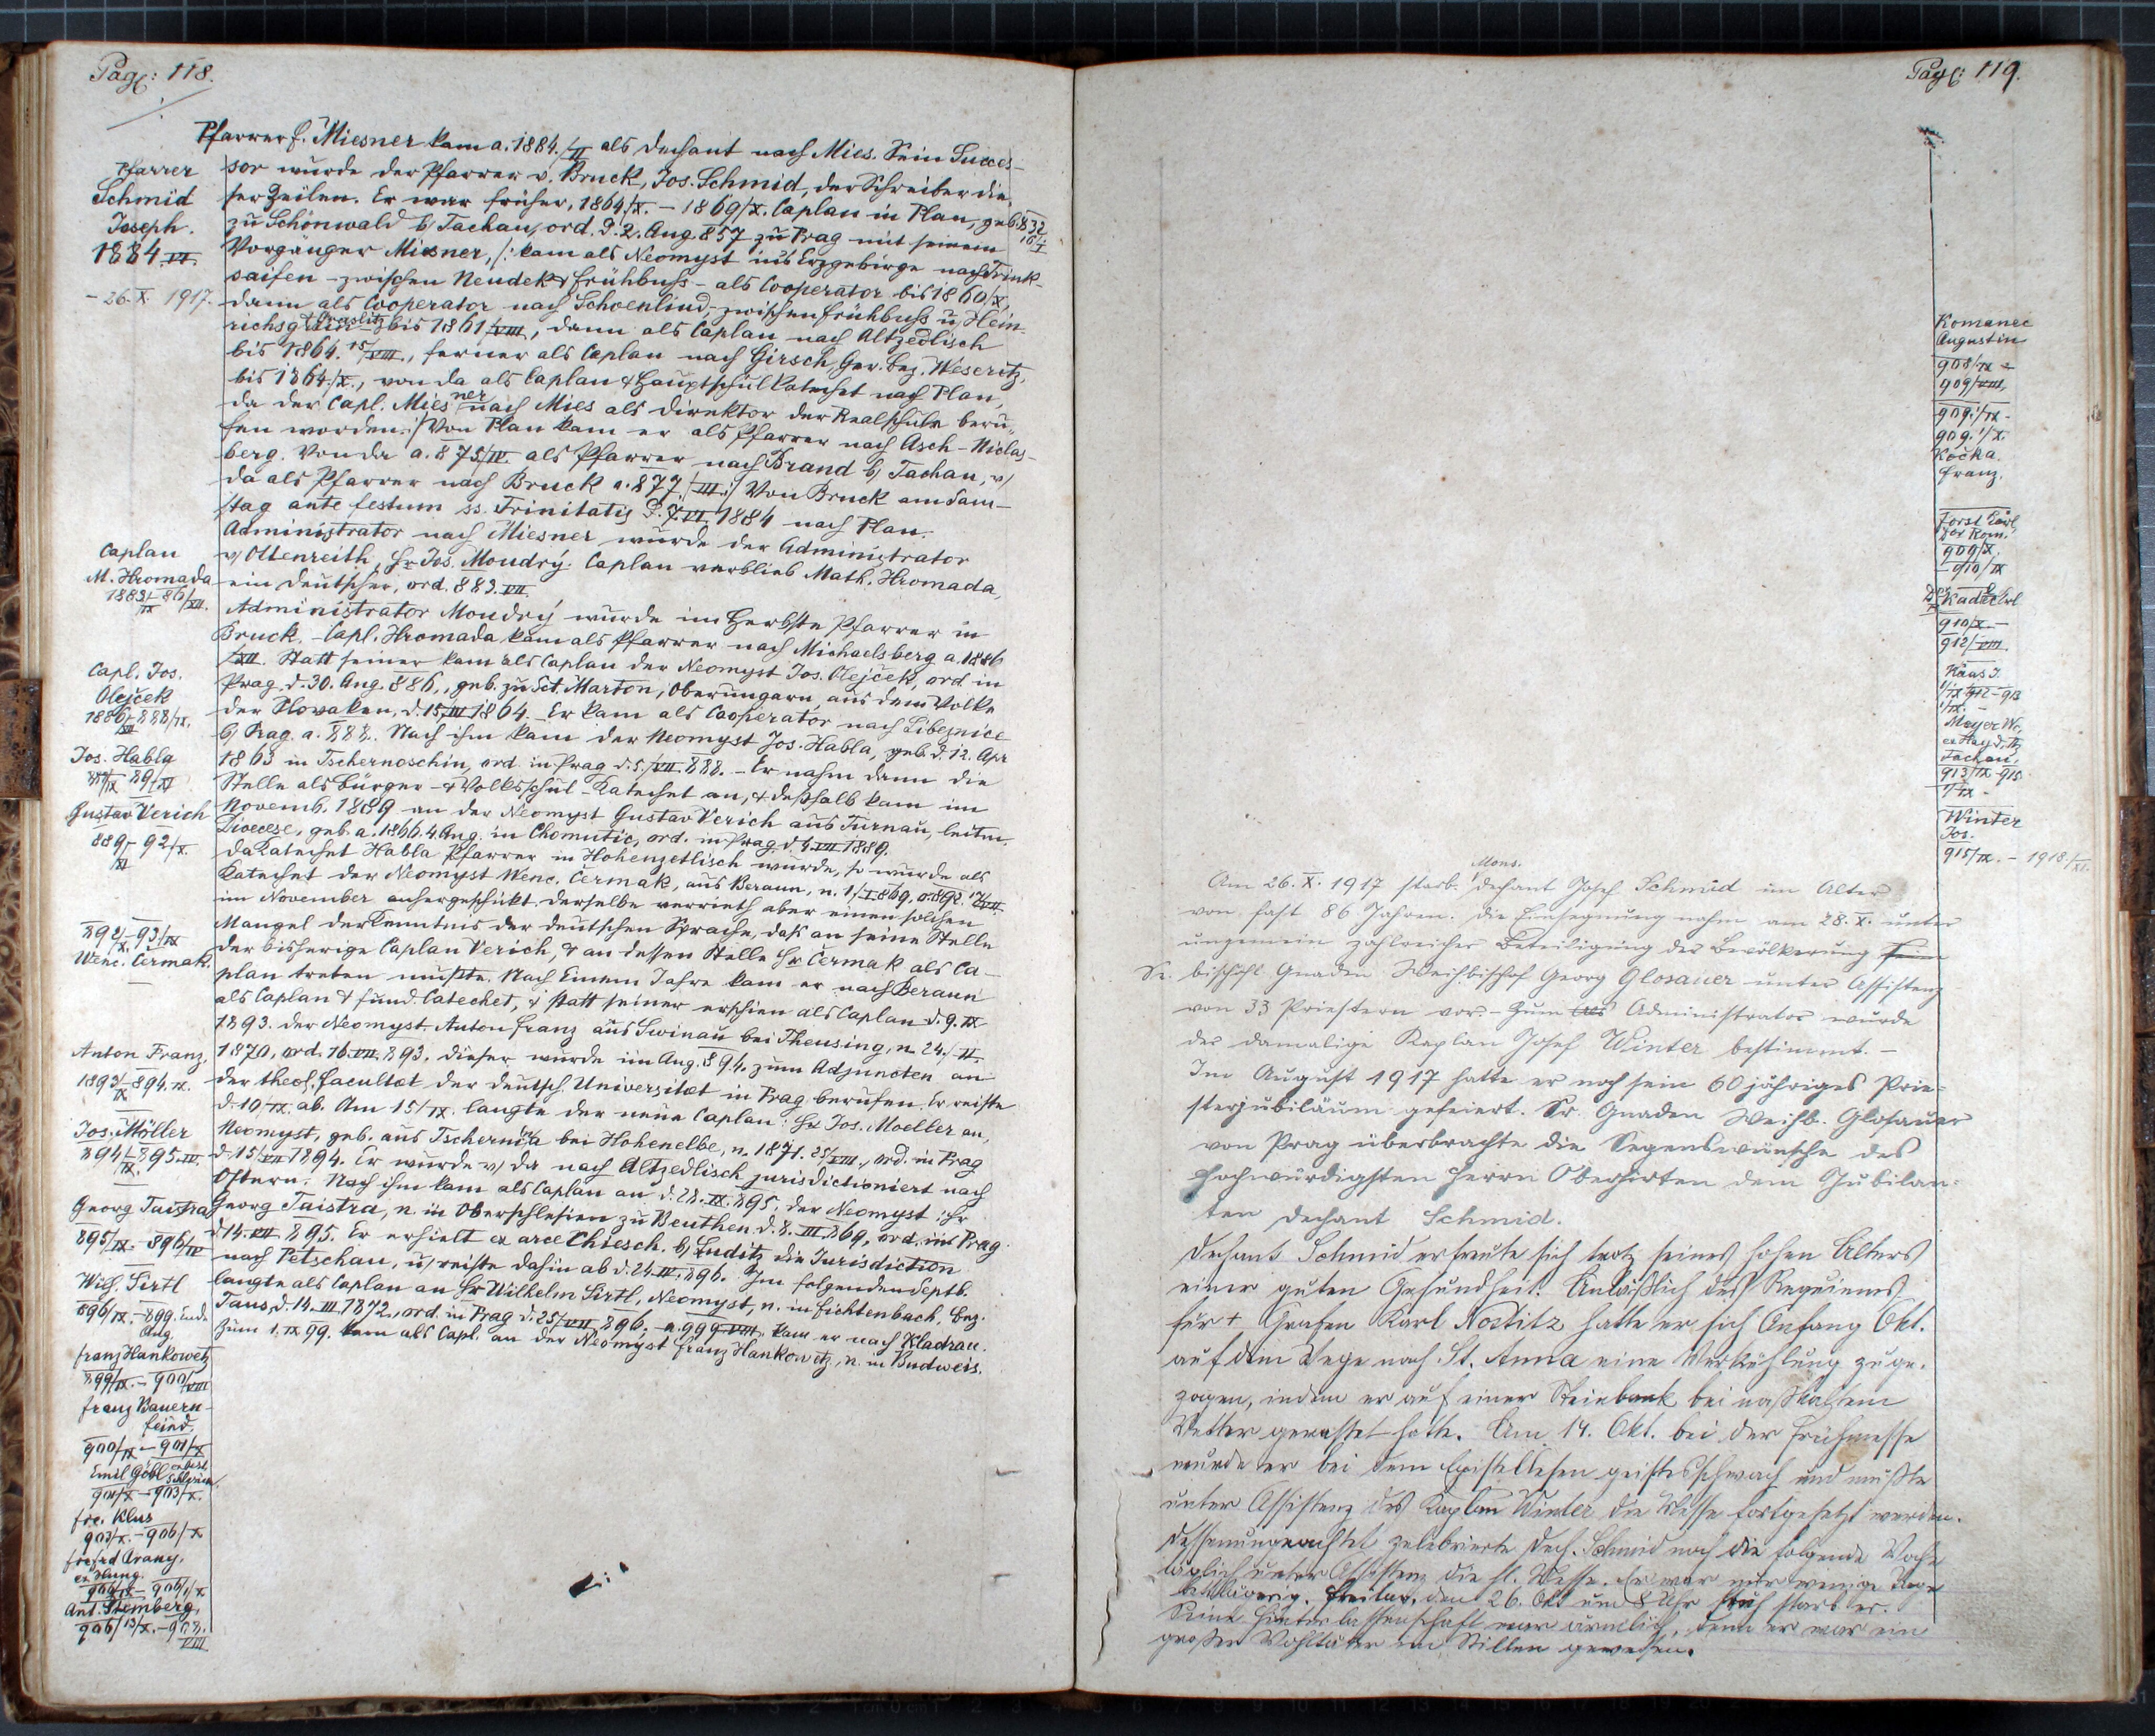 Pag: 118.
Pfarrer F. Miesner kam a. 1884./VI als Dechant nach Mies. Sein Succes-
sor wurde der Pfarrer v. Bruck, Jos. Schmid, der Schreiber die-
ser Zeilen. Er war früher, 1864/X. - 1869/X. Caplan in Plan, geb. 832 16/I
zu Schönwald b/ Tachau, ord. d. 2. Aug. 857 zu Prag mit seinem
Vorgänger Miesner, /: kam als Neomyst ins Erzgebirge nach Trink-
saifen - zwischen Neudek & Frühbuß - als Cooperator bis 1860/X,
dann als Cooperator nach Schoenlind, zwischen Frühbuß u. Hein-
richsgrün Graslitz bis 1861/VIII, dann als Caplan nach Altzedlisch
bis 1864. 15/VIII, ferner als Caplan nach Girsch, Ger. Bez. Weseritz,
bis 1864./X., von da als Caplan & Hauptschulkatechet nach Plan,
da der Capl. Miesner nach Mies als Direktor der Realschule beru-
fen worden. :/ Von Plan kam er als Pfarrer nach Asch-Niclas-
berg. Von da a. 875/IV. als Pfarrer nach Brand b/ Tachau, v/
da als Pfarrer nach Bruck a. 877./III. :/ Von Bruck am Sam-
stag ante festum ss. Trinitatis d. 7.VI. 1884 nach Plan.
Administrator nach Miesner wurde der Administrator
v/ Ottenreith, Hr Jos. Moudrý. Caplan verblieb Math. Hromada,
ein Deutscher, ord. 883. VII.
Administrator Moudrý wurde im Herbste Pfarrer in
Bruck. - Capl. Hromada kam als Pfarrer nach Michaelsberg a. 1886
/XII. Statt seiner kam als Caplan der Neomyst Jos. Olejček, ord. in
Prag d. 30. Aug. 886., geb. zu Sct. Marton, Oberungarn, aus dem Volke
der Slovaken, d. 15./III 1864. - Er kam als Cooperator nach Libeznice
b/ Prag. a. 888. Nach ihm kam der Neomyst Jos. Habla, geb. d. 12. Apr
1863 in Tschernoschin, ord. in Prag d. 5./VII. 888. - Er nahm dann die
Stelle als Bürger- & Volksschul-Katechet an, & deßhalb kam im
Novemb. 1889 an der Neomyst Gustav Verich aus Turnau, leitm.
Dioecese, geb. a. 1866. 4. Aug. in Chomutic, ord. in Prag d. 4. VII 1889.
Da Katechet Habla Pfarrer in Hohenzetlisch wurde, so wurde als
Katechet der Neomyst Wenc. Cermak, aus Beraun, n. 1/I. 869, o. 892.
im November anhergeschickt. Derselbe verrieth aber einen solchen
Mangel der Kenntnis der deutschen Sprache, daß an seine Stelle
der bisherige Caplan Verich, & an dessen Stelle Hr Čermak als Ca-
plan treten mußte. Nach Einem Jahre kam er nach Beraun
als Caplan & fund. Catechet, & statt seiner erschien als Caplan d. 9. IX
1893. der Neomyst Anton Franz aus Swinau bei Theusing, n. 24./II.
1870, ord. 16. VII. 893. Dieser wurde im Aug. 894. zum Adjuncten an
der theol. Facultæt der deutsch. Universitæt in Prag berufen. Er reiste
d. 10/IX. ab. Am 15/IX. langte der neue Caplan: Hr Jos. Moeller an,
Neomyst, geb. aus Tscherna bei Hohenelbe, n. 1871. 25/VIII., ord. in Prag
d. 15/VII 1894. Er wurde v/ da nach Altzedlisch jurisdictioniert nach
Ostern. Nach ihm kam als Caplan an d. 28. IX. 895: der Neomyst: Hr
Georg Taistra, n. in Oberschlesien zu Beuthen d. 8. III. 869, ord. in Prag
d. 14. VII 895. Er erhielt ex arce Chiesch. b/ Luditz die Jurisdiction
nach Petschau, u/ reiste dahin ab d. 24. IV. 896. Im folgenden Septb.
langte als Caplan an Hr Wilhelm Sirtl, Neomyst, n. in Fichtenbach, Bez.
Taus, d. 14. III. 1872., ord. in Prag d. 25/VII. 896. - a. 999 VIII. kam er nach Kladrau.
Zum 1. IX 99. kam als Capl. an der Neomyst Franz Hankowetz, n. in Budweis.
Pfarrer
Schmid
Joseph.
1884. VI.
- 26. X. 1917.
Caplan
M. Hromada
1883/IX - 86/XII.
Capl. Jos.
Olejček
1886/XII - 888/IX.
Jos. Habla
888/IX 89/XI
Gustav Verich
889/XI - 92/X.
892/X. - 93/IX
Wenc. Cermak.
Anton Franz,
1893/IX - 894. IX.
Jos. Möller
894/IX - 895. IV.
Georg Taistra
895/IX. - 896/IV
Wilh. Sirtl
896/IX. - 899. Ende
Aug.
Franz Hankowetz
899/IX. - 900/VIII
Franz Bauern-
feind.
900/IX - 901/X
Emil Göbl
901/X - 903/X.
Frc. Klus
903/X. - 906/X
ex Hung.
Ant. Stemberg,
906/13/X. - 908.
VIII
Pag: 119.
Komanec
Augustin
908/IX -
909/VIII,
909. 1/IX -
909. 1/X.
Kočka
Franz.
Forst Karl
909/X.
- 910/IX
910/X. -
912/VIII.
Haas J.
1/IX 912 - 913
Meyer W.,
Tachau,
913/IX - 915
Winter
Jos.
915/IX. - 1918./XI.
Am 26. X. 1917 starb Mons. Dechant Josef Schmid im Alter
von fast 86 Jahren. Die Einsegnung nahm am 28. X. unter
ungemein zahlreicher Beteiligung der Bevölkerung
Se. bischöfl. Gnaden Weihbischof Georg Glosauer unter Assistenz
von 33 Priestern vor. - Zum Administrator wurde
der damalige Kaplan Josef Winter bestimmt. -
Im August 1917 hatte er noch sein 60 jähriges Prie-
sterjubiläum gefeiert. Sr. Gnaden Weihb. Glosauer
von Prag überbrachte die Segenswünsche des
hochwürdigsten Herrn Oberhirten dem Jubilan-
ten Dechant Schmid.
Dechant Schmid erfreute sich trotz seines hohen Alters
einer guten Gesundheit. Anläßlich des Requiems
für + Grafen Karl Nostitz hatte er sich Anfang Okt.
auf dem Wege nach St. Anna eine Verkühlung zuge-
zogen, indem er auf einer Steinbank bei naßkaltem
Wetter gerastet hatte. Am 14. Okt. bei der Frühmesse
wurde er bei dem Epistellesen geistesschwach und mußte
unter Assistenz des Kaplan Winter die Messe fortgesetzt werden.
Dessenungeachtet zelebrierte Dech. Schmid noch die folgende Woche
täglich unter Assistenz die hl. Messe. Er war nur wenige Tage
bettlägerig. Freitag, den 26. Okt. um 8 Uhr früh starb er.
Seine Hinterlassenschaft war ärmlich, denn er war ein
großer Wohltäter im Stillen gewesen.